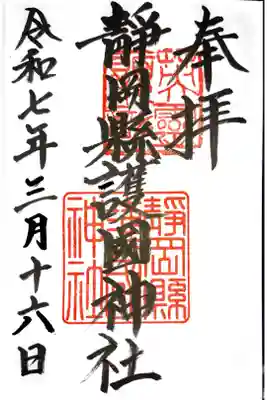 奉拝
靜岡縣護國神社
令和七年三月十六日
靜岡縣
神社